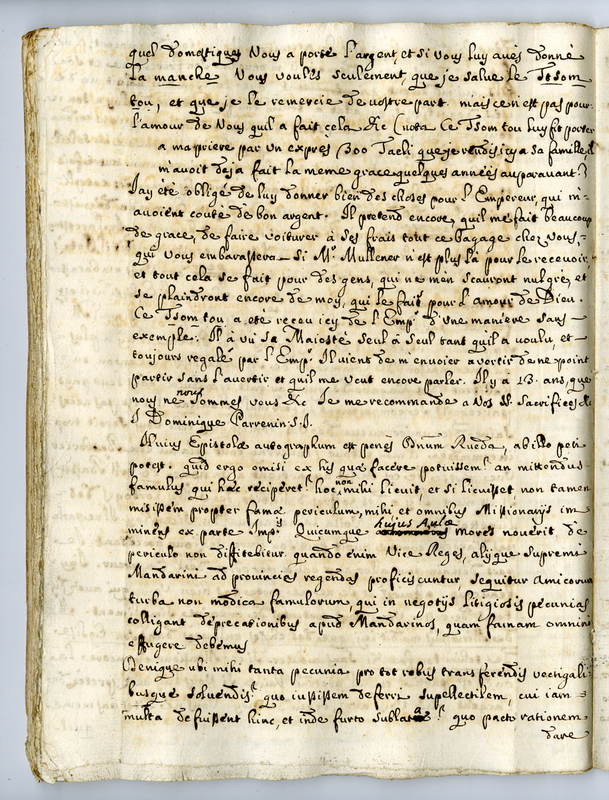 quel domestiques Vous a porté l'argent, et si vous luy avés donné
La manche Vous voulés seulement, que je salue le Tsom
tou, et que je le remercie de vostre part. mais ce n'est pas pour
l'amour de Vous qu'il a fait cela &c (nota Ce Tsom tou luy fit porter
a ma priere par un exprés 300 Taeli que je rendis icy a sa famille, il
m'avoit deja fait la meme grace quelques années auparavant)
J'ay été obligé de luy donner bien des choses pour l'Empereur, qui m'-
avoient couté de bon argent. Il pretend encore, qu'il me fait beaucoup
de grace, de faire voiturer à ses frais tout ce bagage chez vous,
qui vous embarassera si Mr. Mullener n'est plus là pour le recevoir,
et tout cela se fait pour des gens, qui ne m'en scauront nul gré, et
se plaindront encore de moy, qui le fait pour l'amour de Dieu.
Ce Tsom tou a eté receu icy de l'Empr. d'une maniere sans
exemple. Il à vû sa Maiesté seul à seul tant qu'il a voulu, et
toujours regalé par l'Empr. Il vient de m'envoier avertir de ne point
partir sans l'avertir et qu'il me veut encore parler. Il y à 13. ans, que
nous ne nous sommes veus &c Je me recommande a Vos SS. Sacrifices &c
J Dominique Parrenin S.J.
Huius Epistolæ autographum est penes Dnum Rueda, ab illo peti
potest. quid ergo omisi ex his quæ facere potuissem? an mittendus
famulus qui hæc reciperet? hoc non mihi licuit, et si licuisset non tamen
misissem propter famæ periculum, mihi et omnibus Missionarijs im
minens ex parte Impris Quicumque hujus Aulæ mores noverit, de
periculo non diffitebitur. quando enim Vice Reges, alijque supremi
Mandarini ad provincias regendas proficiscuntur sequitur amicorum
turba non modica famulorum, qui in negotijs litigiosis pecunias
colligant deprecationibus apud Mandarinos, quam famam omnino
effugere debemus
Denique ubi mihi tanta pecunia pro tot rebus transferendis vectigali
busque solvendis? quo iussissem deferri supellectilem, cui iam
multa defuissent hinc, et inde furto sublata? quo pacto rationem
dare